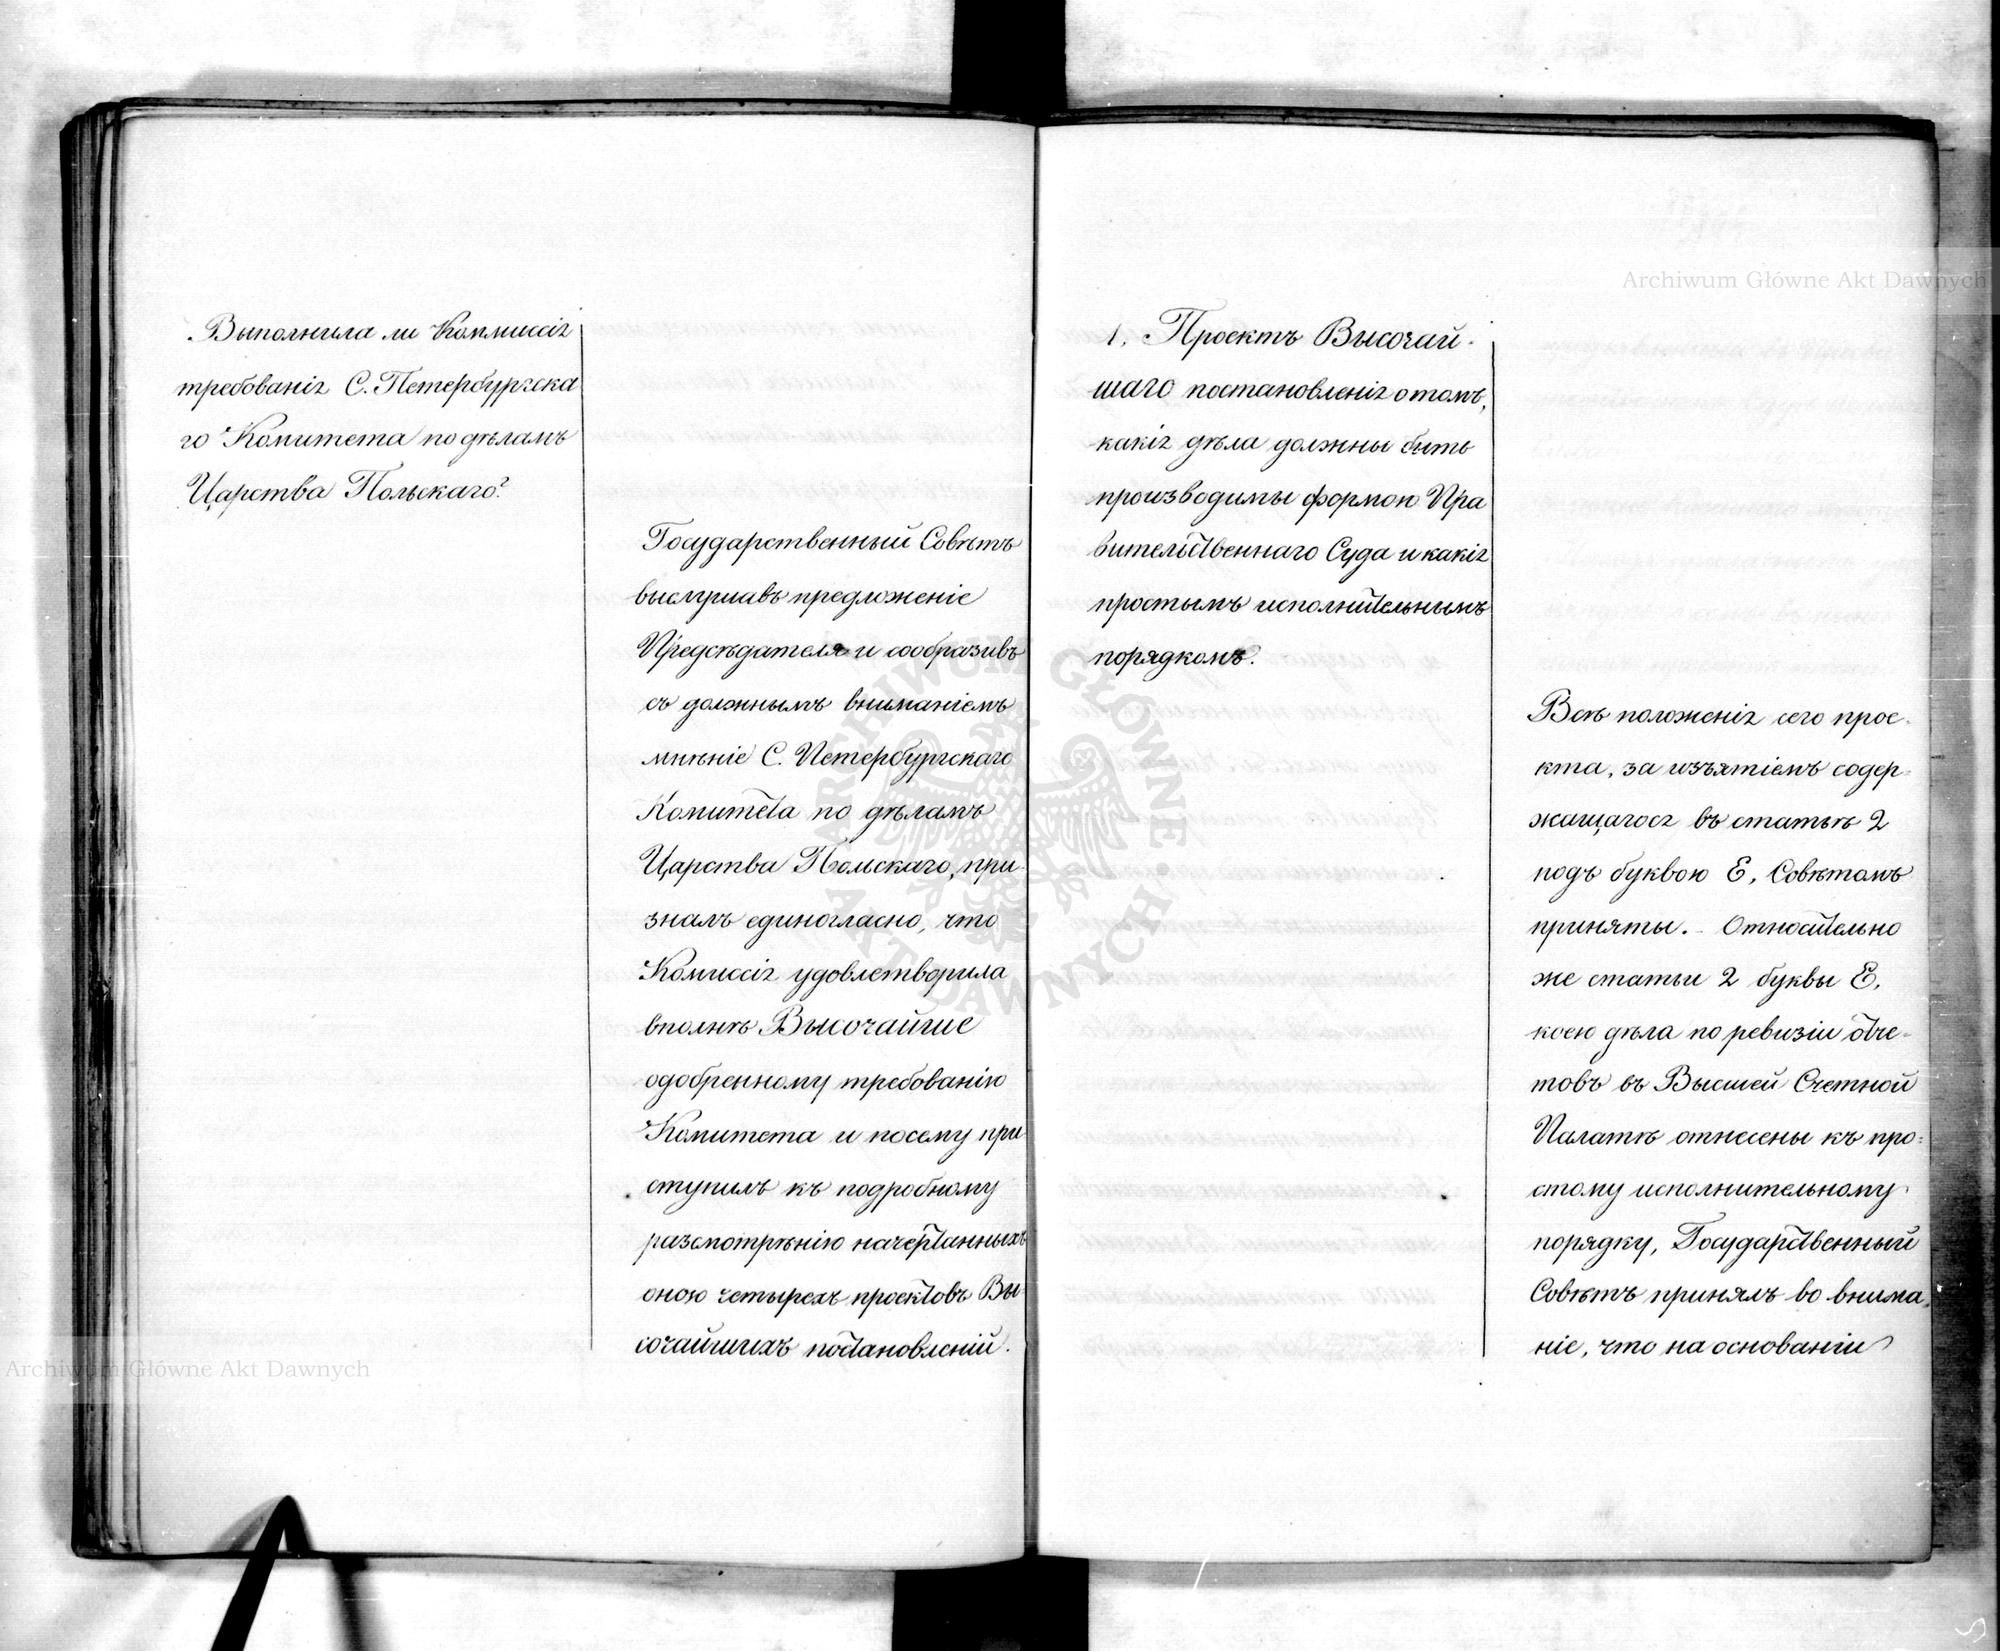 Выполнила ли Коммиссія
требованія С. Петербургска
го Комитета по дѣламъ
Царства Польскаго?
Государственный Совѣтъ
выслушавъ предложеніе
Предсѣдателя и сообразивъ
съ должнымъ вниманіемъ
мнѣніе С. Петербургскаго
Комитета по дѣламъ
Царства Польскаго, при-
зналъ единогласно, что
Комиссія удовлетворила
вполнѣ Высочайше
одобренному требованію
Комитета и посему при
ступилъ къ подробному
разсмотрѣнію начертанныхъ
оною четырехъ проектовъ Вы-
сочайшихъ постановленій.
1. Проектъ Высочай-
шаго постановленія о томъ,
какія дѣла должны быть
производимы формою Пра
вительственнаго Суда и какія
простымъ исполнительнымъ
порядкомъ.
Всѣ положенія сего прое-
кта, за изъятіемъ содер-
жащагося въ статьѣ 2
подъ буквою Е, Совѣтомъ
приняты. - Относительно
же статьи 2 буквы Е,
коею дѣла по ревизіи отче-
товъ въ Высшей Счетной
Палатѣ отнесены къ про=
стому исполнительному
порядку, Государственный
Совѣтъ принялъ во внима-
ніе, что на основаніи
Archiwum Główne Akt Dawnych
Archiwum Główne Akt Dawnych
ARCHIWUM GŁÓWNE AKT DAWNYCH